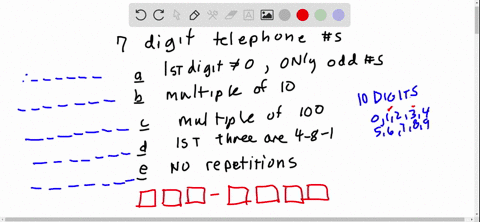 7 digit telephone #s
a 1ST digit ≠ 0, ONLY odd #s
b multiple of 10
c multiple of 100
d 1ST three are 4-8-1
e NO repetitions
10 DIGITS
0,1,2,3,4
5,6,7,8,9